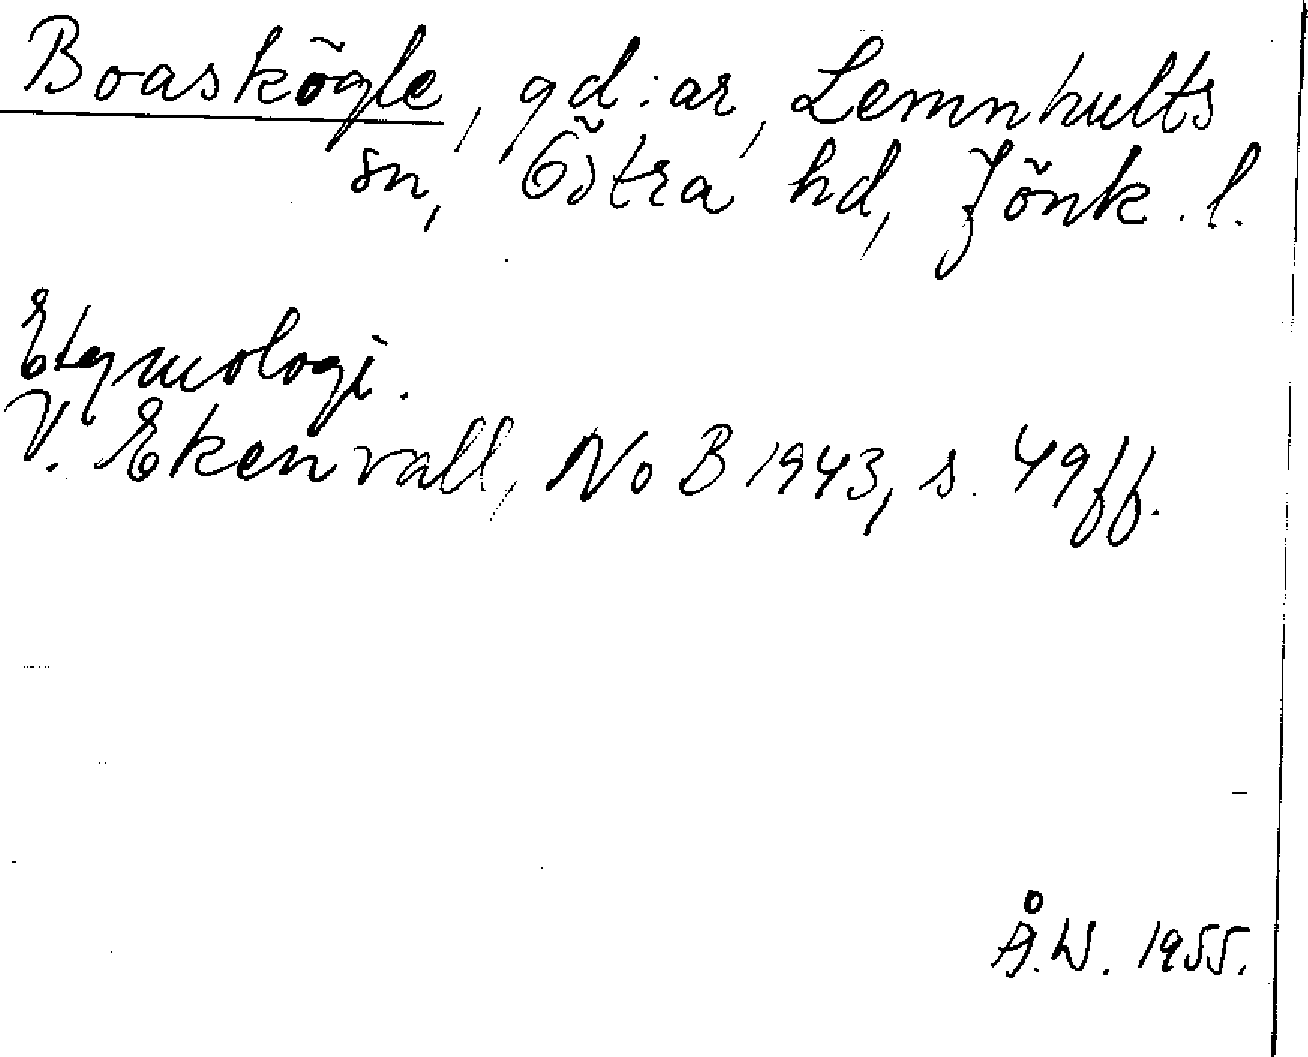 Boasködgle, gd:ar, Lemnhults
sn, Östra hd, Jönk. l.
Etymologi.
V. Ekenvall, NoB 1943, s. 49ff.
Å.W. 1955.